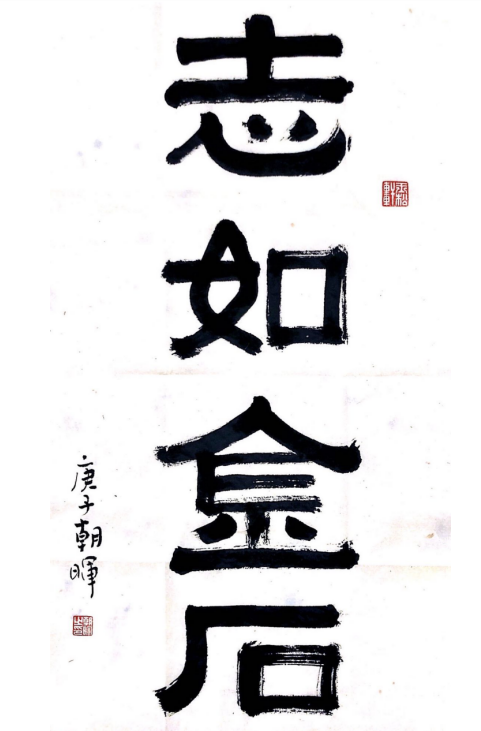 志如金石
庚子朝暉